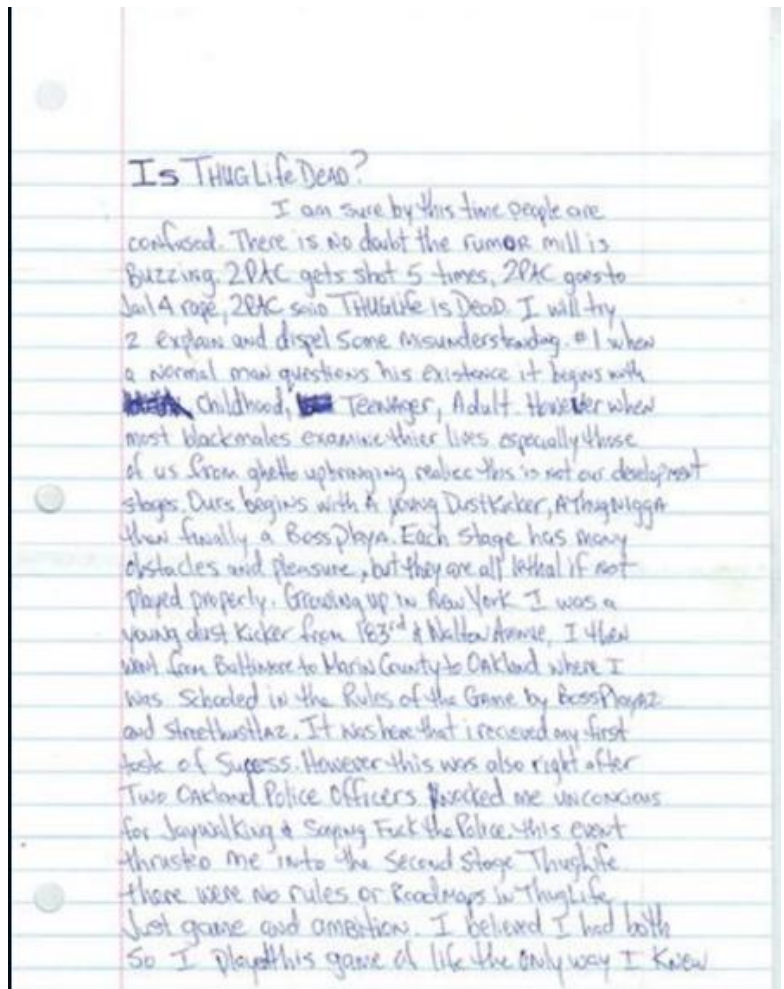 Is THUG Life DEAD?
I am sure by this time people are
confused. There is no doubt the rumor mill is
Buzzing. 2PAC gets shot 5 times, 2PAC goes to
Jail 4 rape, 2PAC said THUGLife Is DeaD. I will try
2 explain and dispel some misunderstanding. #1 when
a normal man questions his existence it begins with
Childhood, Teenager, Adult. However when
most blackmales examine thier lives especially those
of us from ghetto upbringing realize this is not our development
stages. Ours begins with A young DustKicker, A Thug NiggA
then finally a Boss Playa. Each stage has many
obstacles and pleasure, but they are all lethal if not
played properly. Growing up in New York I was a
young dust kicker from 183rd & Walton Avenue, I then
went from Baltimore to Marin County to Oakland where I
was schooled in the Rules of the Game by BossPlayaz
and Streethustlaz. It was here that i recieved my first
taste of Sucess. However this was also right after
Two Oakland Police Officers knocked me unconcious
for Jaywalking & Saying Fuck the Police. this event
thrusted me into the Second Stage Thuglife
there were no rules or Roadmaps in ThugLife
Just game and ambition. I believed I had both
So I played this game of life the only way I Knew